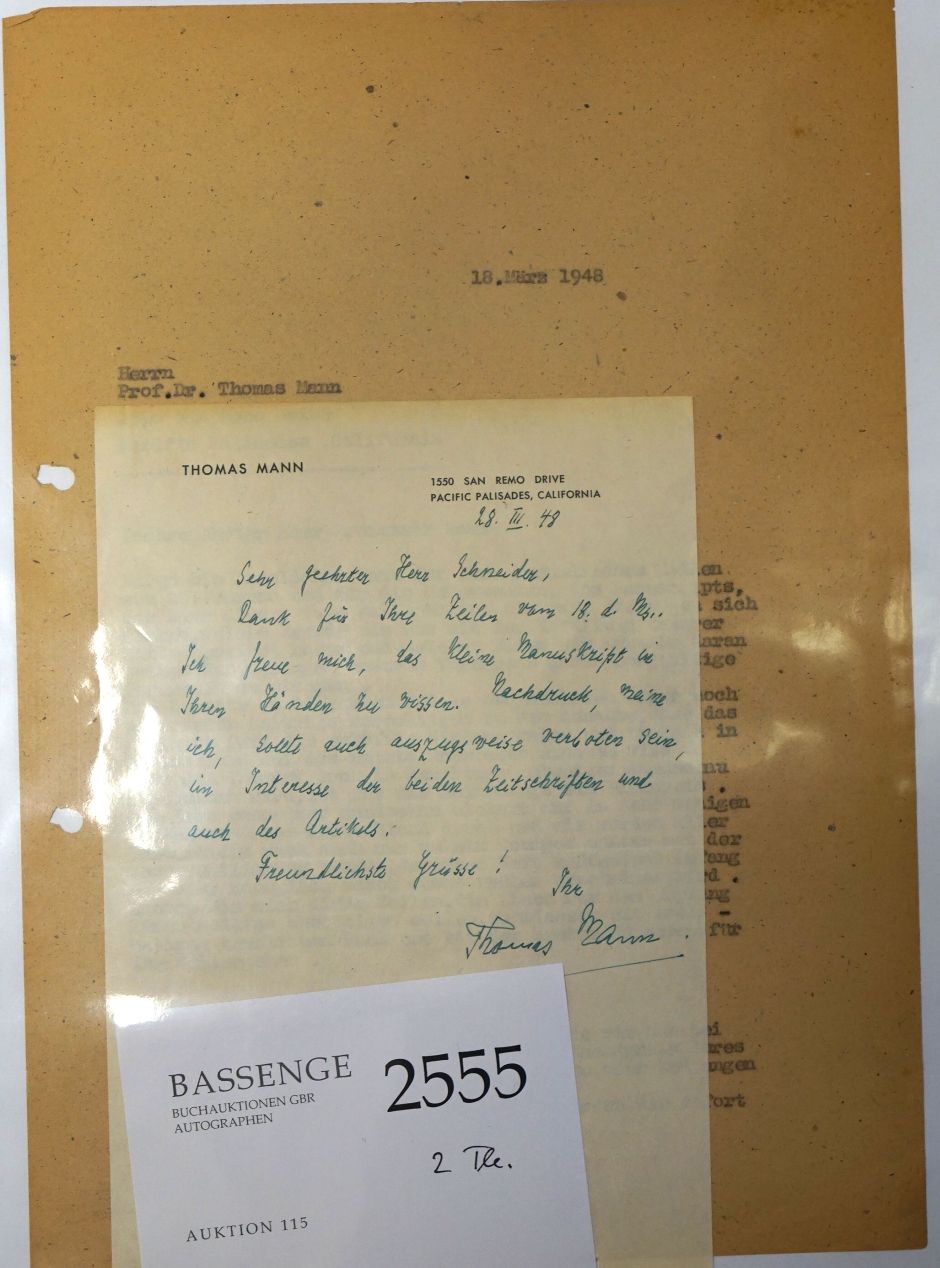 18.März 1948
Herrn
Prof.Dr. Thomas Mann
THOMAS MANN
1550 SAN REMO DRIVE
PACIFIC PALISADES, CALIFORNIA
28. III. 48
Sehr geehrter Herr Schneider,
Dank für Ihre Zeilen vom 18. d. Ms..
Ich freue mich, das kleine Manuskript in
Ihren Händen zu wissen. Nachdruck, meine
ich, sollte auch auszugsweise verboten sein,
im Interesse der beiden Zeitschriften und
auch des Artikels.
Freundlichste Grüsse!
Ihr
Thomas Mann.
en
pts,
sich
er
daran
tige
noch
das
in
nu
.
nigen
er
der
fang
d .
ng
-
für
ei
res
ngen
fort
BASSENGE
BUCHAUKTIONEN GBR
AUTOGRAPHEN
2555
2 Tle.
AUKTION 115